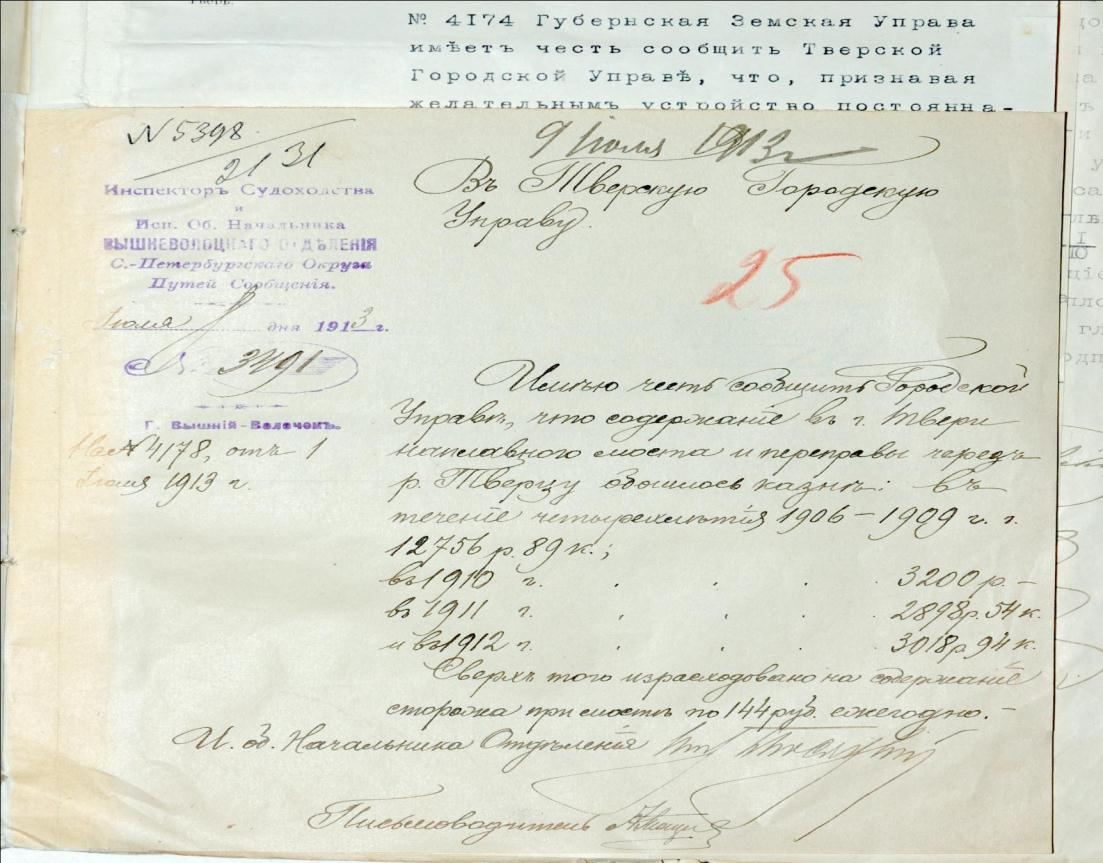 Тверь.
№ 4174 Губернская Земская Управа
имѣетъ честь сообщить Тверской
Городской Управѣ, что, признавая
желательнымъ устройство постоянна-
N 5398
21 31
9 Іюля 1913 г
Инспекторъ Судоходства
и
Исп. Об. Начальника
ВЫШНЕВОЛОЦКАГО ОТДѢЛЕНІЯ
С.-Петербургскаго Округа
Путей Сообщенія.
Іюля 8 дня 1913 г.
№ 3491
Г. Вышній-Волочекъ.
На № 4178, отъ 1
Іюля 1913 г.
Въ Тверскую Городскую
Управу.
25
Имѣю честь сообщить Городской
Управѣ, что содержаніе въ г. Твери
наплавного моста и переправы чередъ
р. Тверцу обошлось казнѣ: въ
теченіе четырехлѣтія 1906 – 1909 г. г.
12756 р. 89 к.;
въ 1910 г. . . . 3200 р. –
въ 1911 г. . . . 2898 р. 54 к.
и въ 1912 г. . . . 3018 р. 94 к.
Сверхъ того израсходовано на содержаніе
сторожа при мостѣ по 144 руб. ежегодно. –
И. об. Начальника Отдѣленія
Письмоводитель